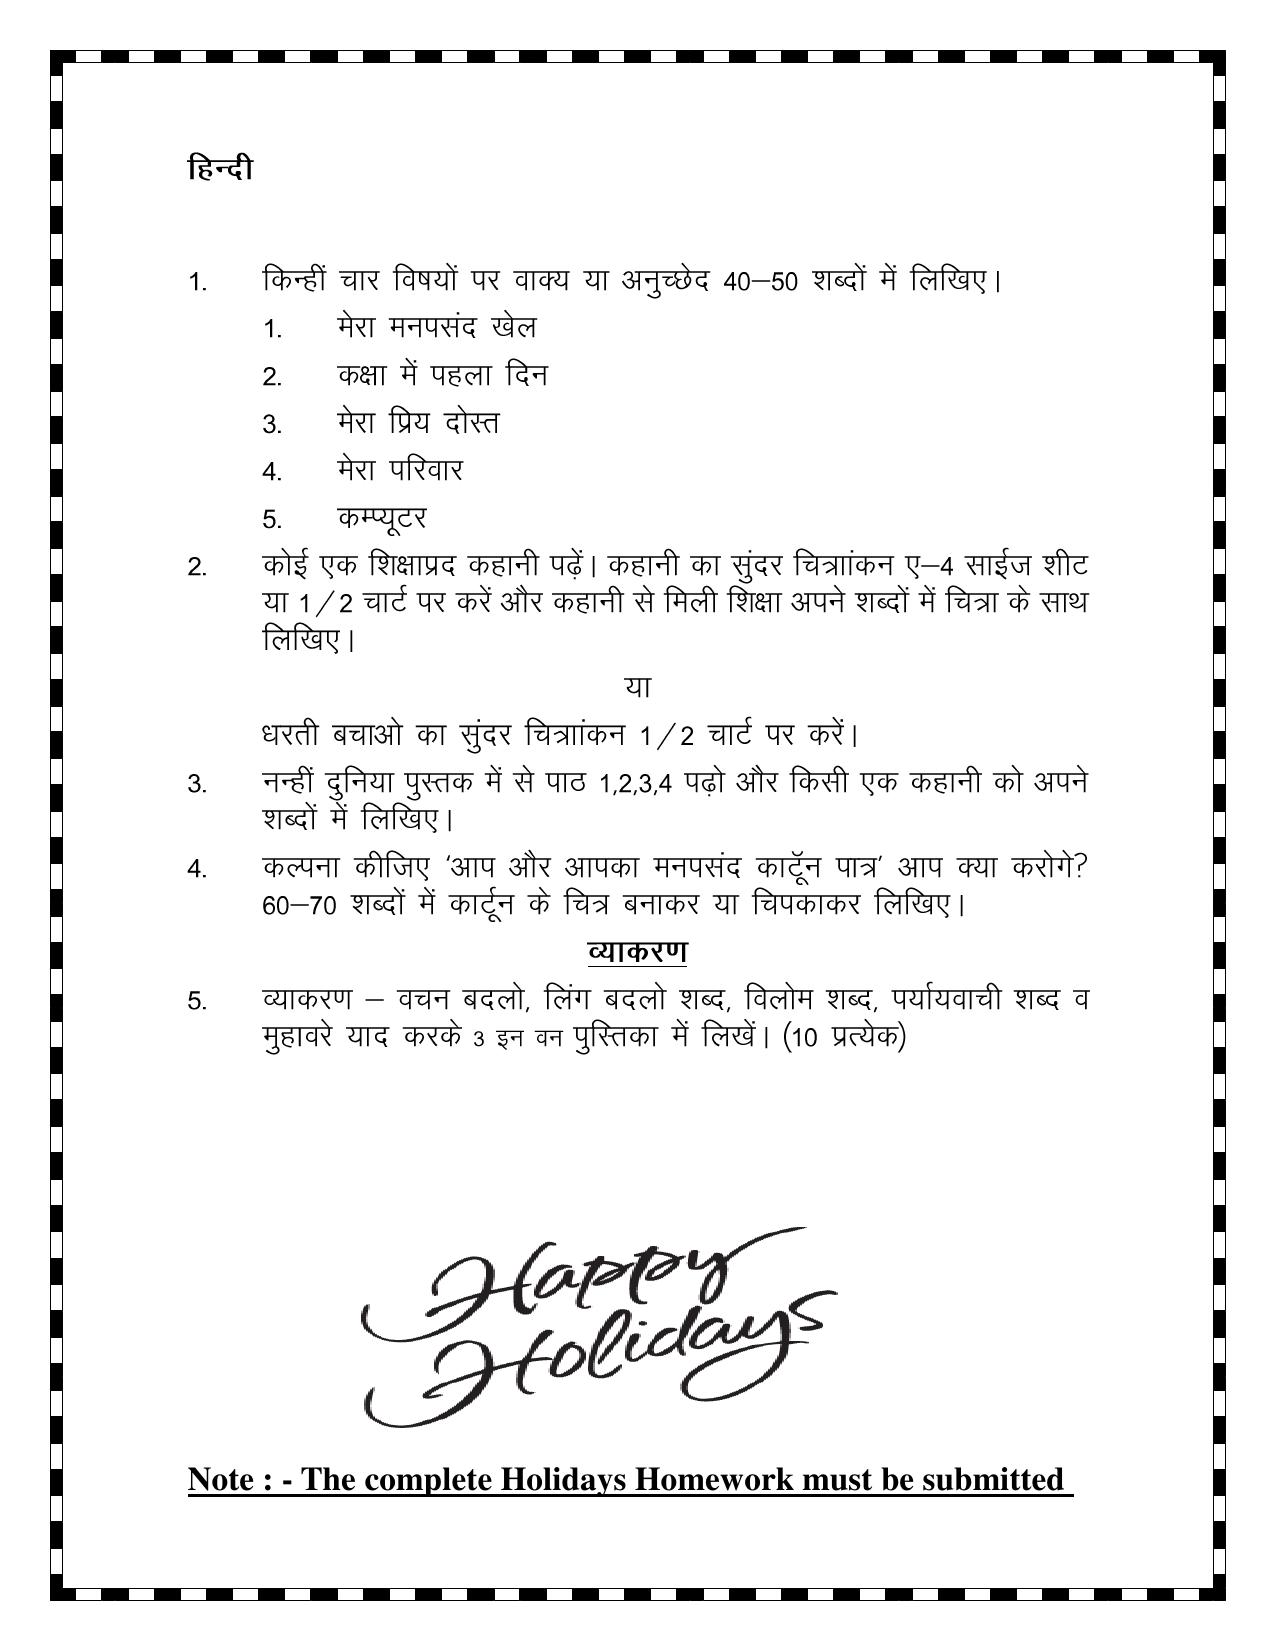 हिन्दी
1. किन्हीं चार विषयों पर वाक्य या अनुच्छेद 40–50 शब्दों में लिखिए।
1. मेरा मनपसंद खेल
2. कक्षा में पहला दिन
3. मेरा प्रिय दोस्त
4. मेरा परिवार
5. कम्प्यूटर
2. कोई एक शिक्षाप्रद कहानी पढ़ें। कहानी का सुंदर चित्राांकन ए–4 साईज शीट
या 1/2 चार्ट पर करें और कहानी से मिली शिक्षा अपने शब्दों में चित्रा के साथ
लिखिए।
या
धरती बचाओ का सुंदर चित्राांकन 1/2 चार्ट पर करें।
3. नन्हीं दुनिया पुस्तक में से पाठ 1,2,3,4 पढ़ो और किसी एक कहानी को अपने
शब्दों में लिखिए।
4. कल्पना कीजिए ‘आप और आपका मनपसंद काटॅून पात्र’ आप क्या करोगे?
60–70 शब्दों में कार्टून के चित्र बनाकर या चिपकाकर लिखिए।
व्याकरण
5. व्याकरण – वचन बदलो, लिंग बदलो शब्द, विलोम शब्द, पर्यायवाची शब्द व
मुहावरे याद करके 3 इन वन पुस्तिका में लिखें। (10 प्रत्येक)
Happy
Holidays
Note : - The complete Holidays Homework must be submitted